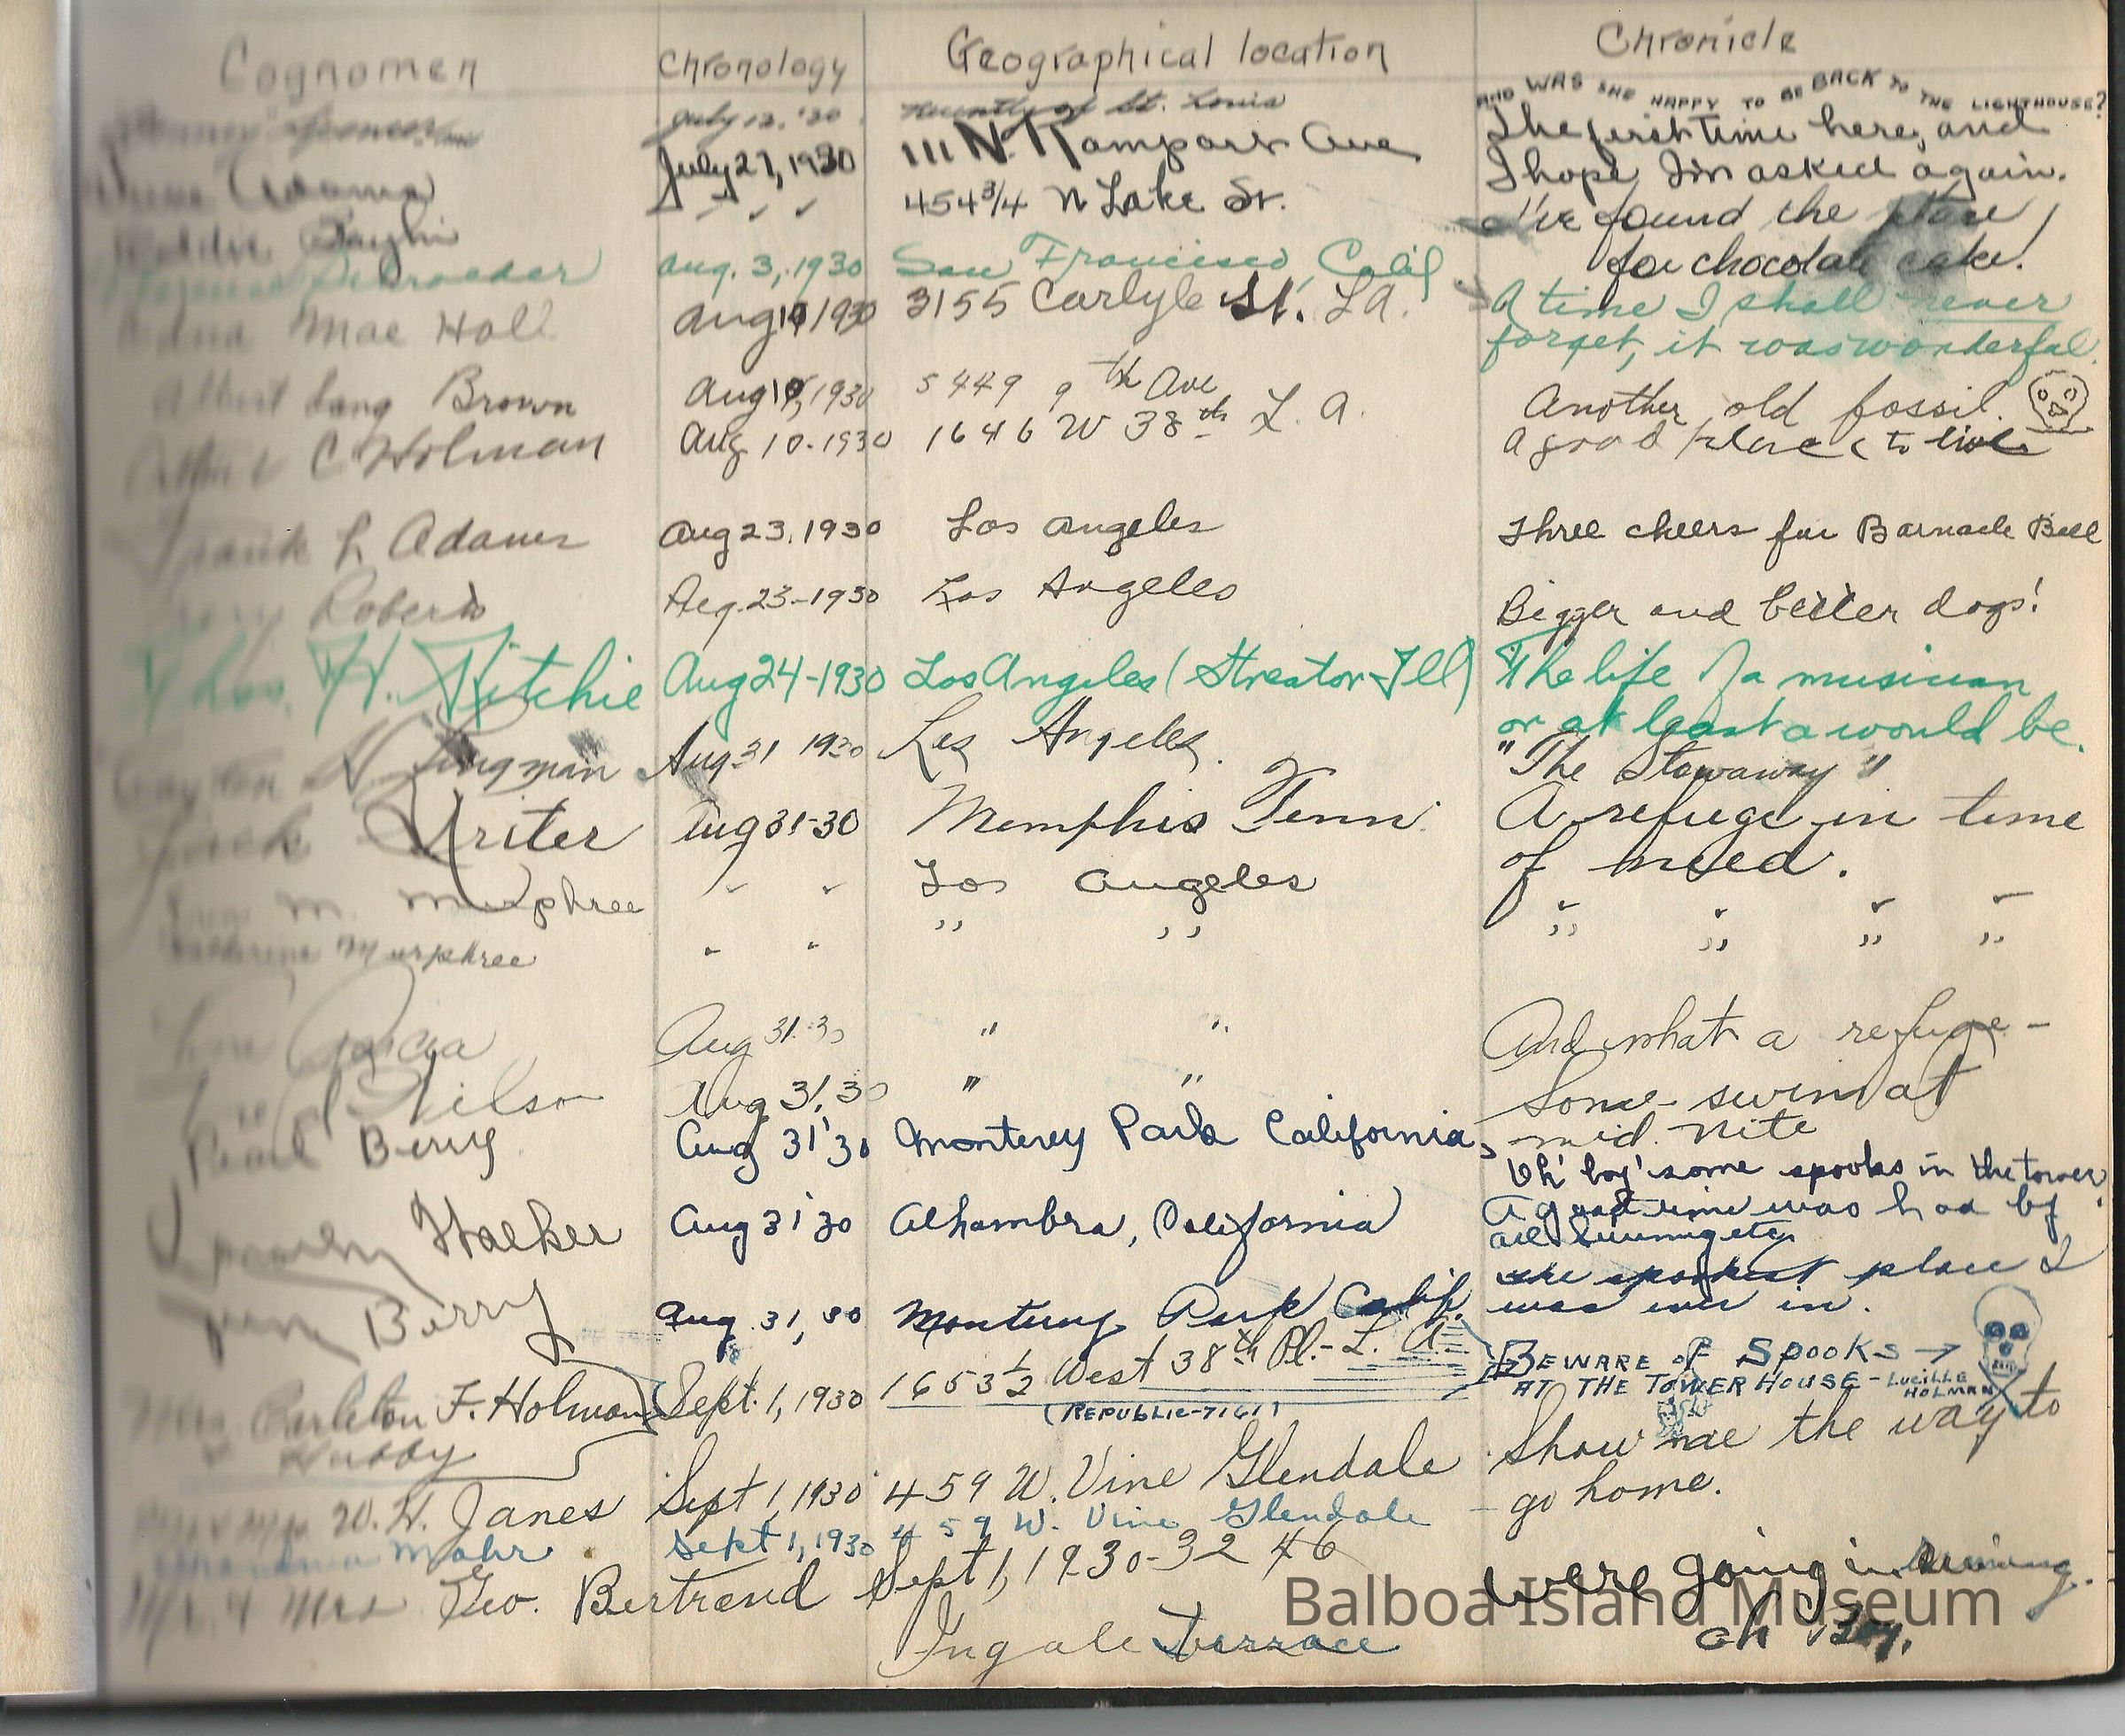 Cognomen Chronology Geographical location Chronicle
AND WAS SHE HAPPY TO BE BACK TO THE LIGHTHOUSE?
July 12, '30 of St. Louis
July 27, 1930 111 N. Rampart Ave The first time here, and
I hope I'm asked again.
Adams 454 3/4 N Lake St. I've found the place
for chocolate cake!
Schroeder Aug. 3, 1930 San Francisco, Calif A time I shall never
forget, it was wonderful.
Edna Mae Hall Aug 10 1930 3155 Carlyle St. LA.
Albert Lang Brown Aug 10, 1930 5449 9th Ave L. A. Another old fossil.
C Holman Aug 10-1930 1646 W 38th A good place to live
Frank L Adams Aug 23, 1930 Los Angeles Three cheers for Barnacle Bill
Roberts Aug. 23-1930 Los Angeles Bigger and better dogs!
Thos. H. Ritchie Aug 24-1930 Los Angeles (Streator-Ill) The life of a musician
or at least a would be.
Lingman Aug 31 1930 Los Angeles. "The Stowaway"
Jack Kriter Aug 31-30 Memphis Tenn. A refuge in time
of need.
M. Murphree " " Los Angeles " " " "
Katherine Murphree " " " " " " " "
Garcia Aug 31-30 " " And what a refuge-
Wilson Aug 31, 30 " " Some swim at
mid. nite
Pearl Berry Aug 31 '30 Monterey Park California, Oh' boy' some spooks in the tower
Walker Aug 31 '30 Alhambra, California A good time was had by
all
Berry Aug. 31, 30 Monterey Park Calif. the spookiest place I
was ever in.
Mrs Carleton F. Holman Sept. 1, 1930 1653 1/2 West 38th Pl.- L. A. BEWARE OF SPOOKS →
& Hubby (REPUBLIC-7161) AT THE TOWER HOUSE - LUCILLE HOLMAN
Mr & Mrs W. H. Janes Sept 1, 1930 459 W. Vine Glendale Show me the way to
go home.
Grandma Mohr Sept 1, 1930 459 W. Vine Glendale
Mr. & Mrs Geo. Bertrand Sept 1, 1930-3246 were going in
Ingale Terrace oh Boy.
Balboa Island Museum